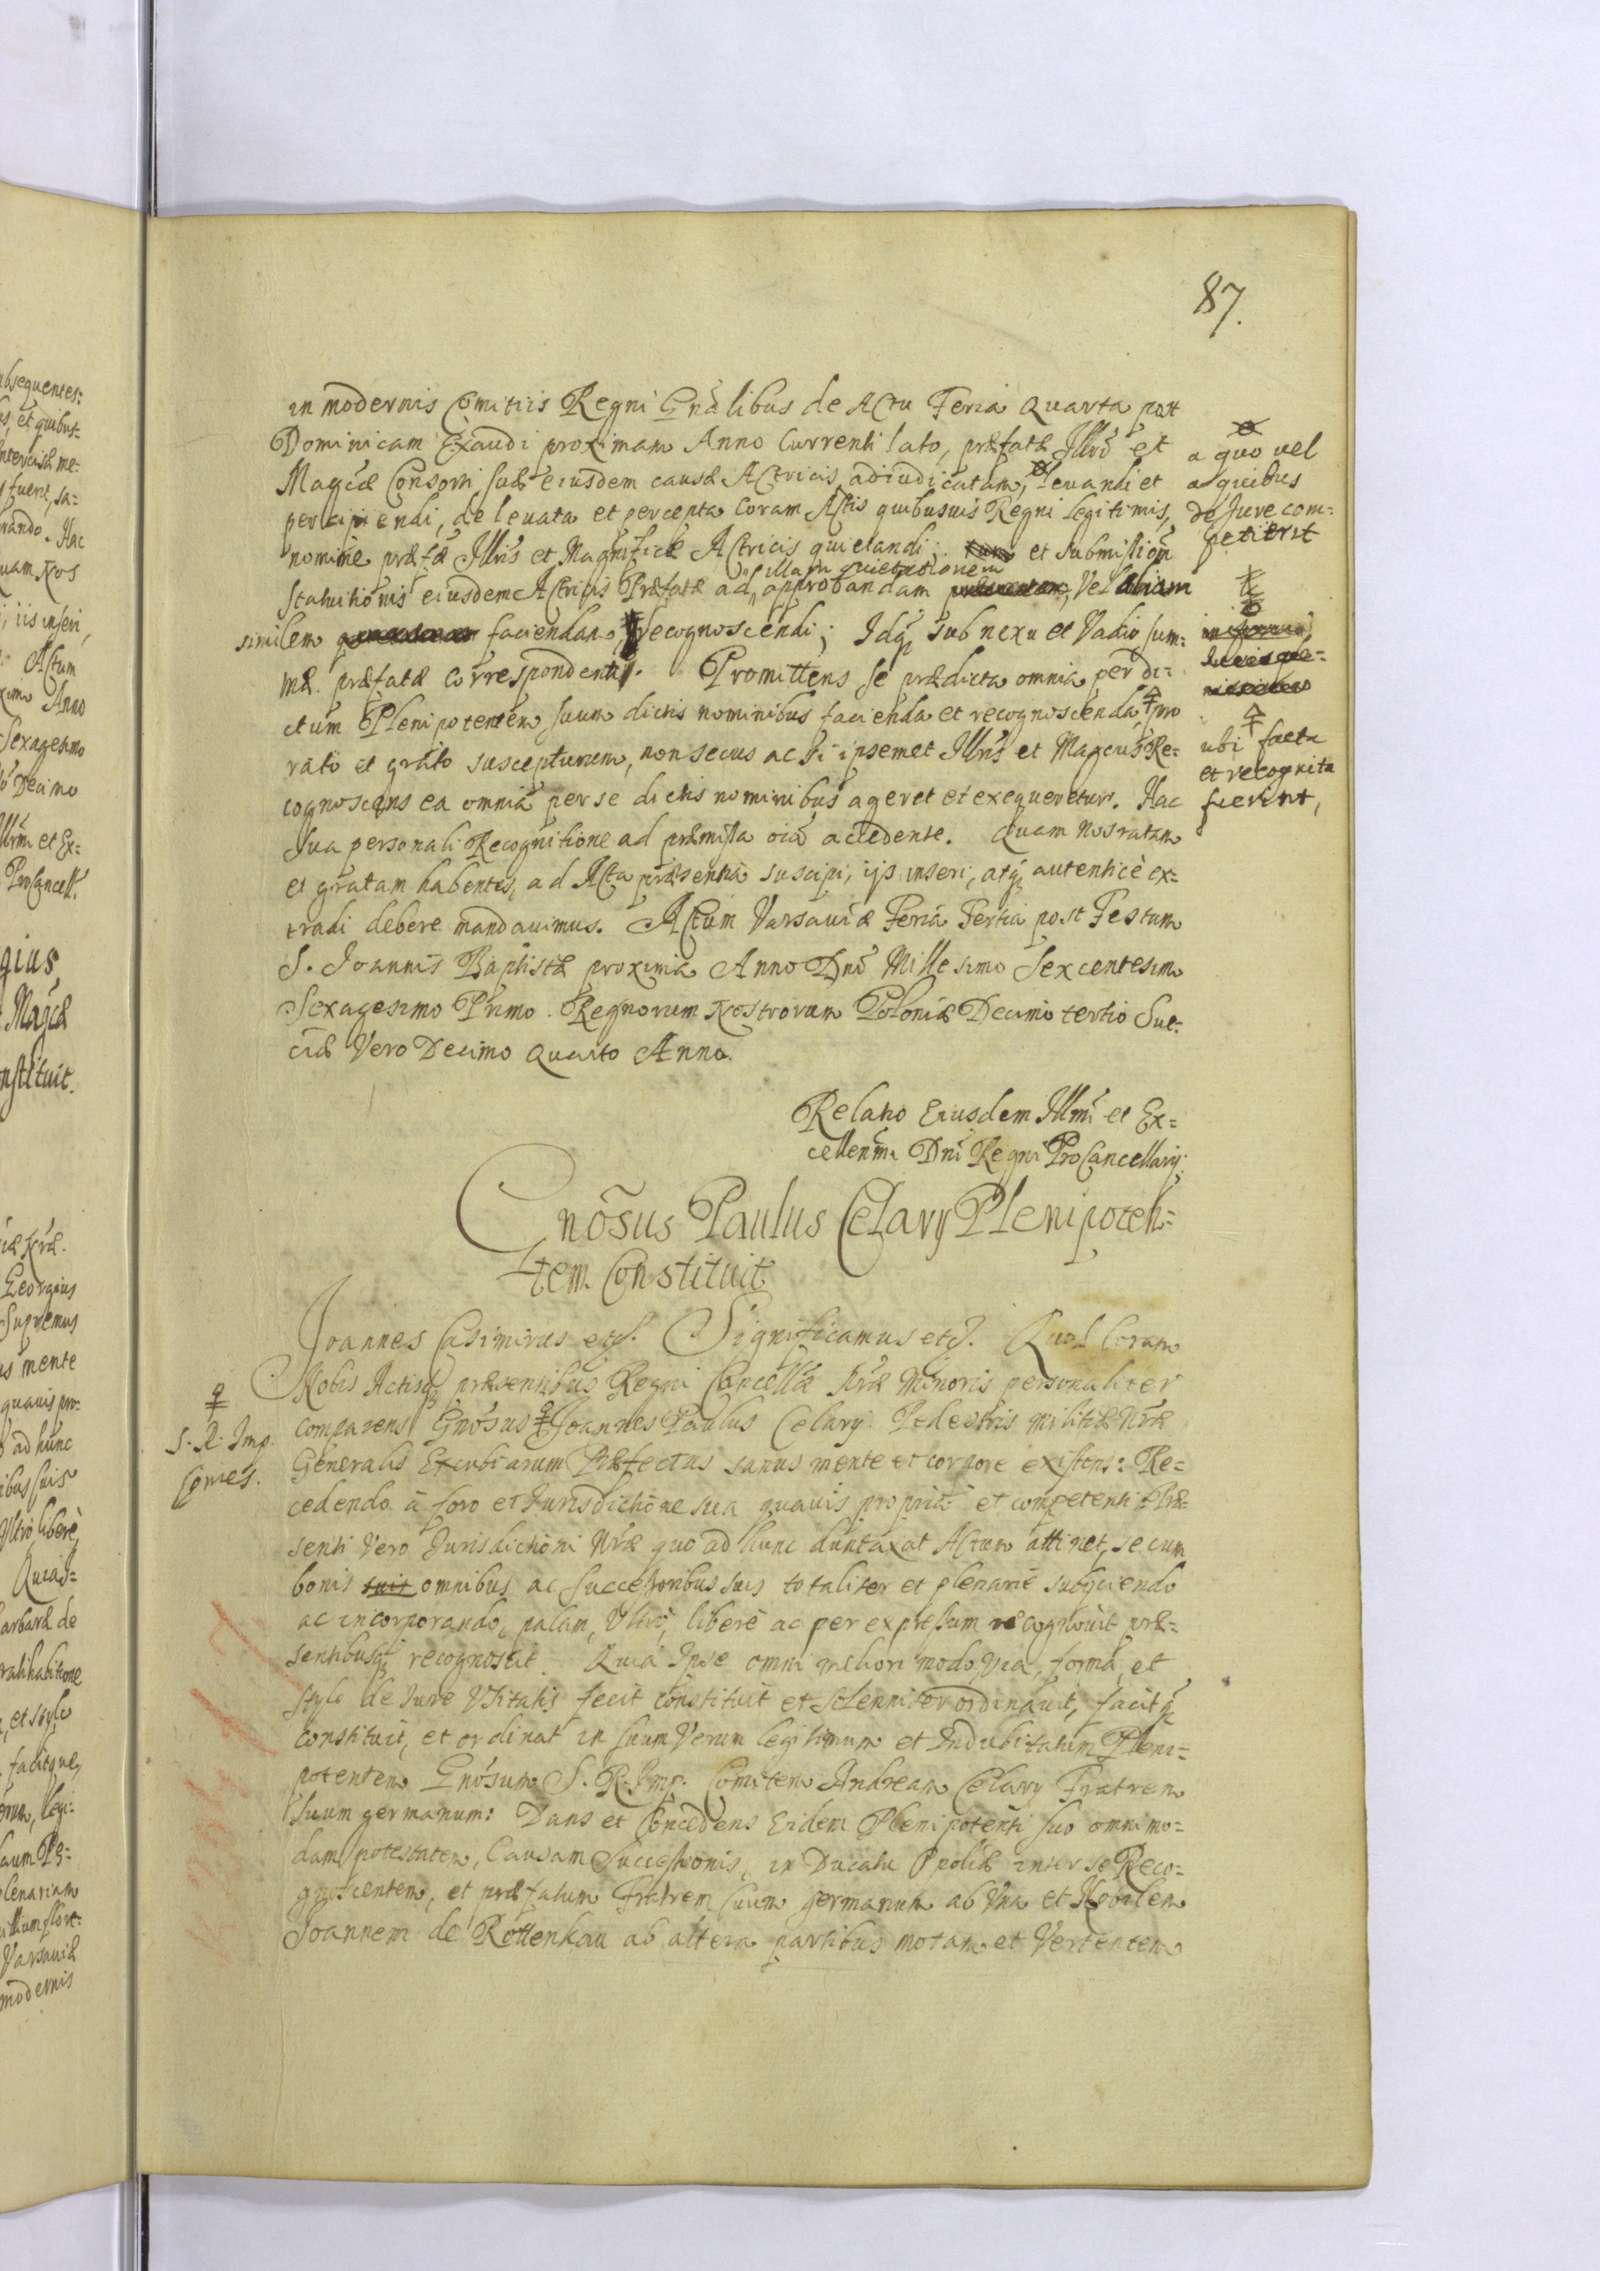 87.
in modernis Comitiis Regni Gnãlibus de Actu Feria Quarta post
Dominicam Exaudi proximam Anno Currenti lato, præfatæ Illri et
Magcæ Consorti suæ eiusdem causæ Actricis adiudicatam, levandi et
percipiendi, de levata et percepta Coram Actis quibusvis Regni Legitimis,
nomine præfæ Illris et Magnificæ Actricis quietandi; et submissiõn
illam quietationem
Statuitionis eiusdem Actricis Præfatæ ad approbandam, Vel aliam
similem faciendam, recognoscendi; Idq sub nexu et Vadio sum=
mæ præfatæ correspondenti. Promittens se prædicta omnia per di=
ctum Plenipotentem suum dictis nominibus facienda et recognoscenda, pro
rato et grato suscepturum, non secus ac si ipsemet Illris et Magcus Re=
cognoscens ea omnia per se dictis nominibus ageret et exequeretur. Hac
sua personali Recognitione ad præmissa oia accedente. Quam Nos ratam
et gratam habentes, ad Acta præsentia suscipi, ijs inseri, atq autenticè ex=
tradi debere mandavimus. Actum Varsaviæ Feria Tertia post Festum
S. Joannis Baptistæ proxima Anno Dni Millesimo Sexcentesimo
Sexagesimo Primo. Regnorum Nostrorum Poloniæ Decimo tertio Sue=
ciæ Vero Decimo Quarto Anno.
a quo vel
a quibus
de Jure com=
petierit
ubi facta
et recognita
fuerint,
Relatio Eiusdem Illmi et Ex=
cellenmi Dni Regni ProCancellarij.
Gnõsus Paulus Celary Plenipoten=
tem Constituit
Joannes Casimirus etc. Significamus etc. Quod Coram
Nobis Actisq præsentibus Regni Cancellæ Nræ Minoris personaliter
comparens Gnõsus Joannes Paulus Celary Pedestris militiæ Nræ
S. R. Imp.
Comes.
Generalis Excubiarum Præfectus sanus mente et corpore existens: Re=
cedendo à foro et Jurisdictione sua quavis propria et competenti Præ=
senti Vero Jurisdictioni Nræ quo ad hunc duntaxat Actum attinet, se cum
bonis suis omnibus ac successoribus suis totaliter et plenariè subijciendo
ac incorporando, palam, Ultrò, liberè ac per expressum recognovit præ=
sentibusq recognoscit. Quia Ipse omni meliori modo, via, forma, et
stylo de Jure Usitatis fecit constituit et solenniter ordinavit, facitq
constituit, et ordinat in suum Verum legitimum et Indubitatum Pleni=
potentem Gnõsum S. R. Imp. Comitem Andream Celary Fratrem
suum germanum: Dans et Concedens Eidem Plenipotenti suo omnimo=
dam potestatem, Causam Successionis, in Ducatu Opoliæ inter se Reco=
gnoscentem, et præfatum Fratrem suum germanum ab Una et Nobilem
Joannem de Rottenkau ab altera partibus motam et Vertentem